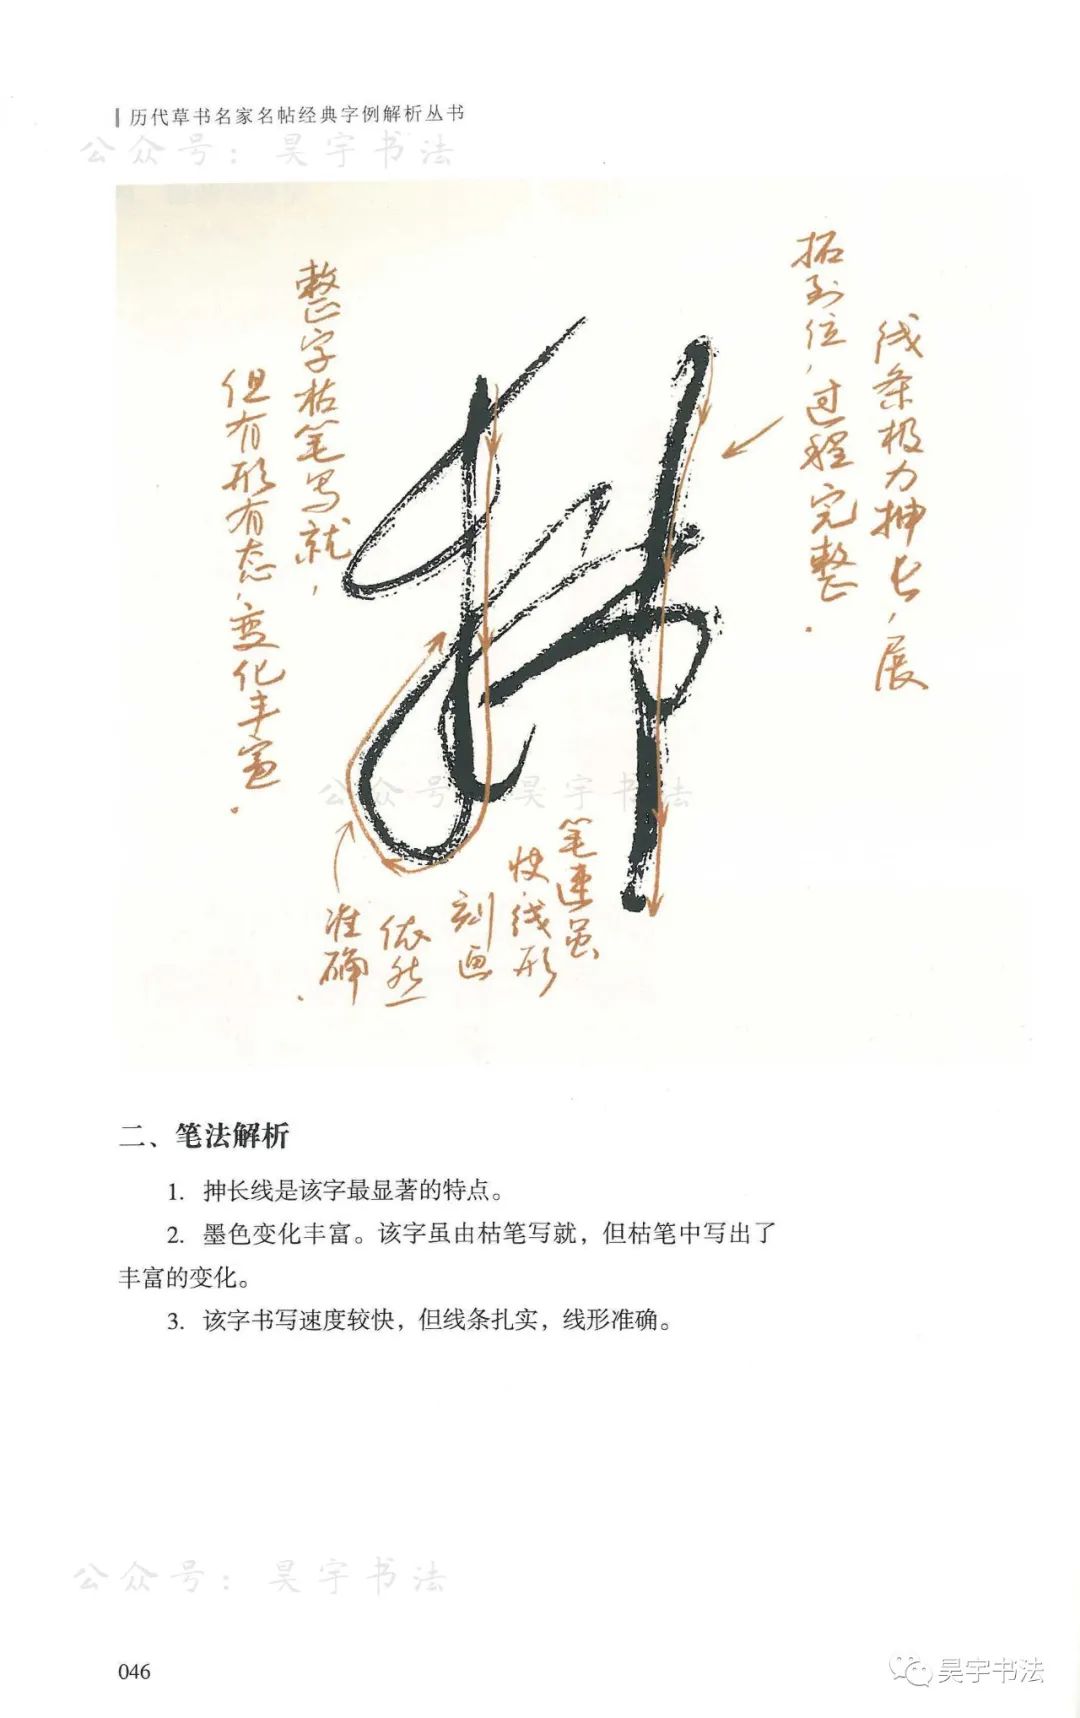 历代草书名家名帖经典字例解析丛书
公众号：昊宇书法
线条极力抻长，展
拓到位，过程完整.
整字枯笔写就，
但有形有态，变化丰富.
公众号 昊宇书法
笔速虽
快，线形
刻画
依然
准确.
二、笔法解析
1. 抻长线是该字最显著的特点。
2. 墨色变化丰富。该字虽由枯笔写就，但枯笔中写出了
丰富的变化。
3. 该字书写速度较快，但线条扎实，线形准确。
公众号：昊宇书法
046
昊宇书法